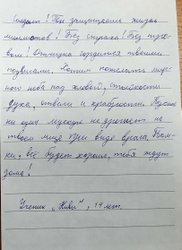 Солдат! Ты защищаешь жизни
миллионов! Без страха! Без
Отчизна гордится твоими
подвигами. Хотим пожелать мирного
неба над головой, стойкости
духа, отваги и храбрости. Пускай
ни один мускул не дрогнет на
твоём лице при виде врага. Помни,
всё будет хорошо, тебя ждут
дома!
Ученик 14 лет.